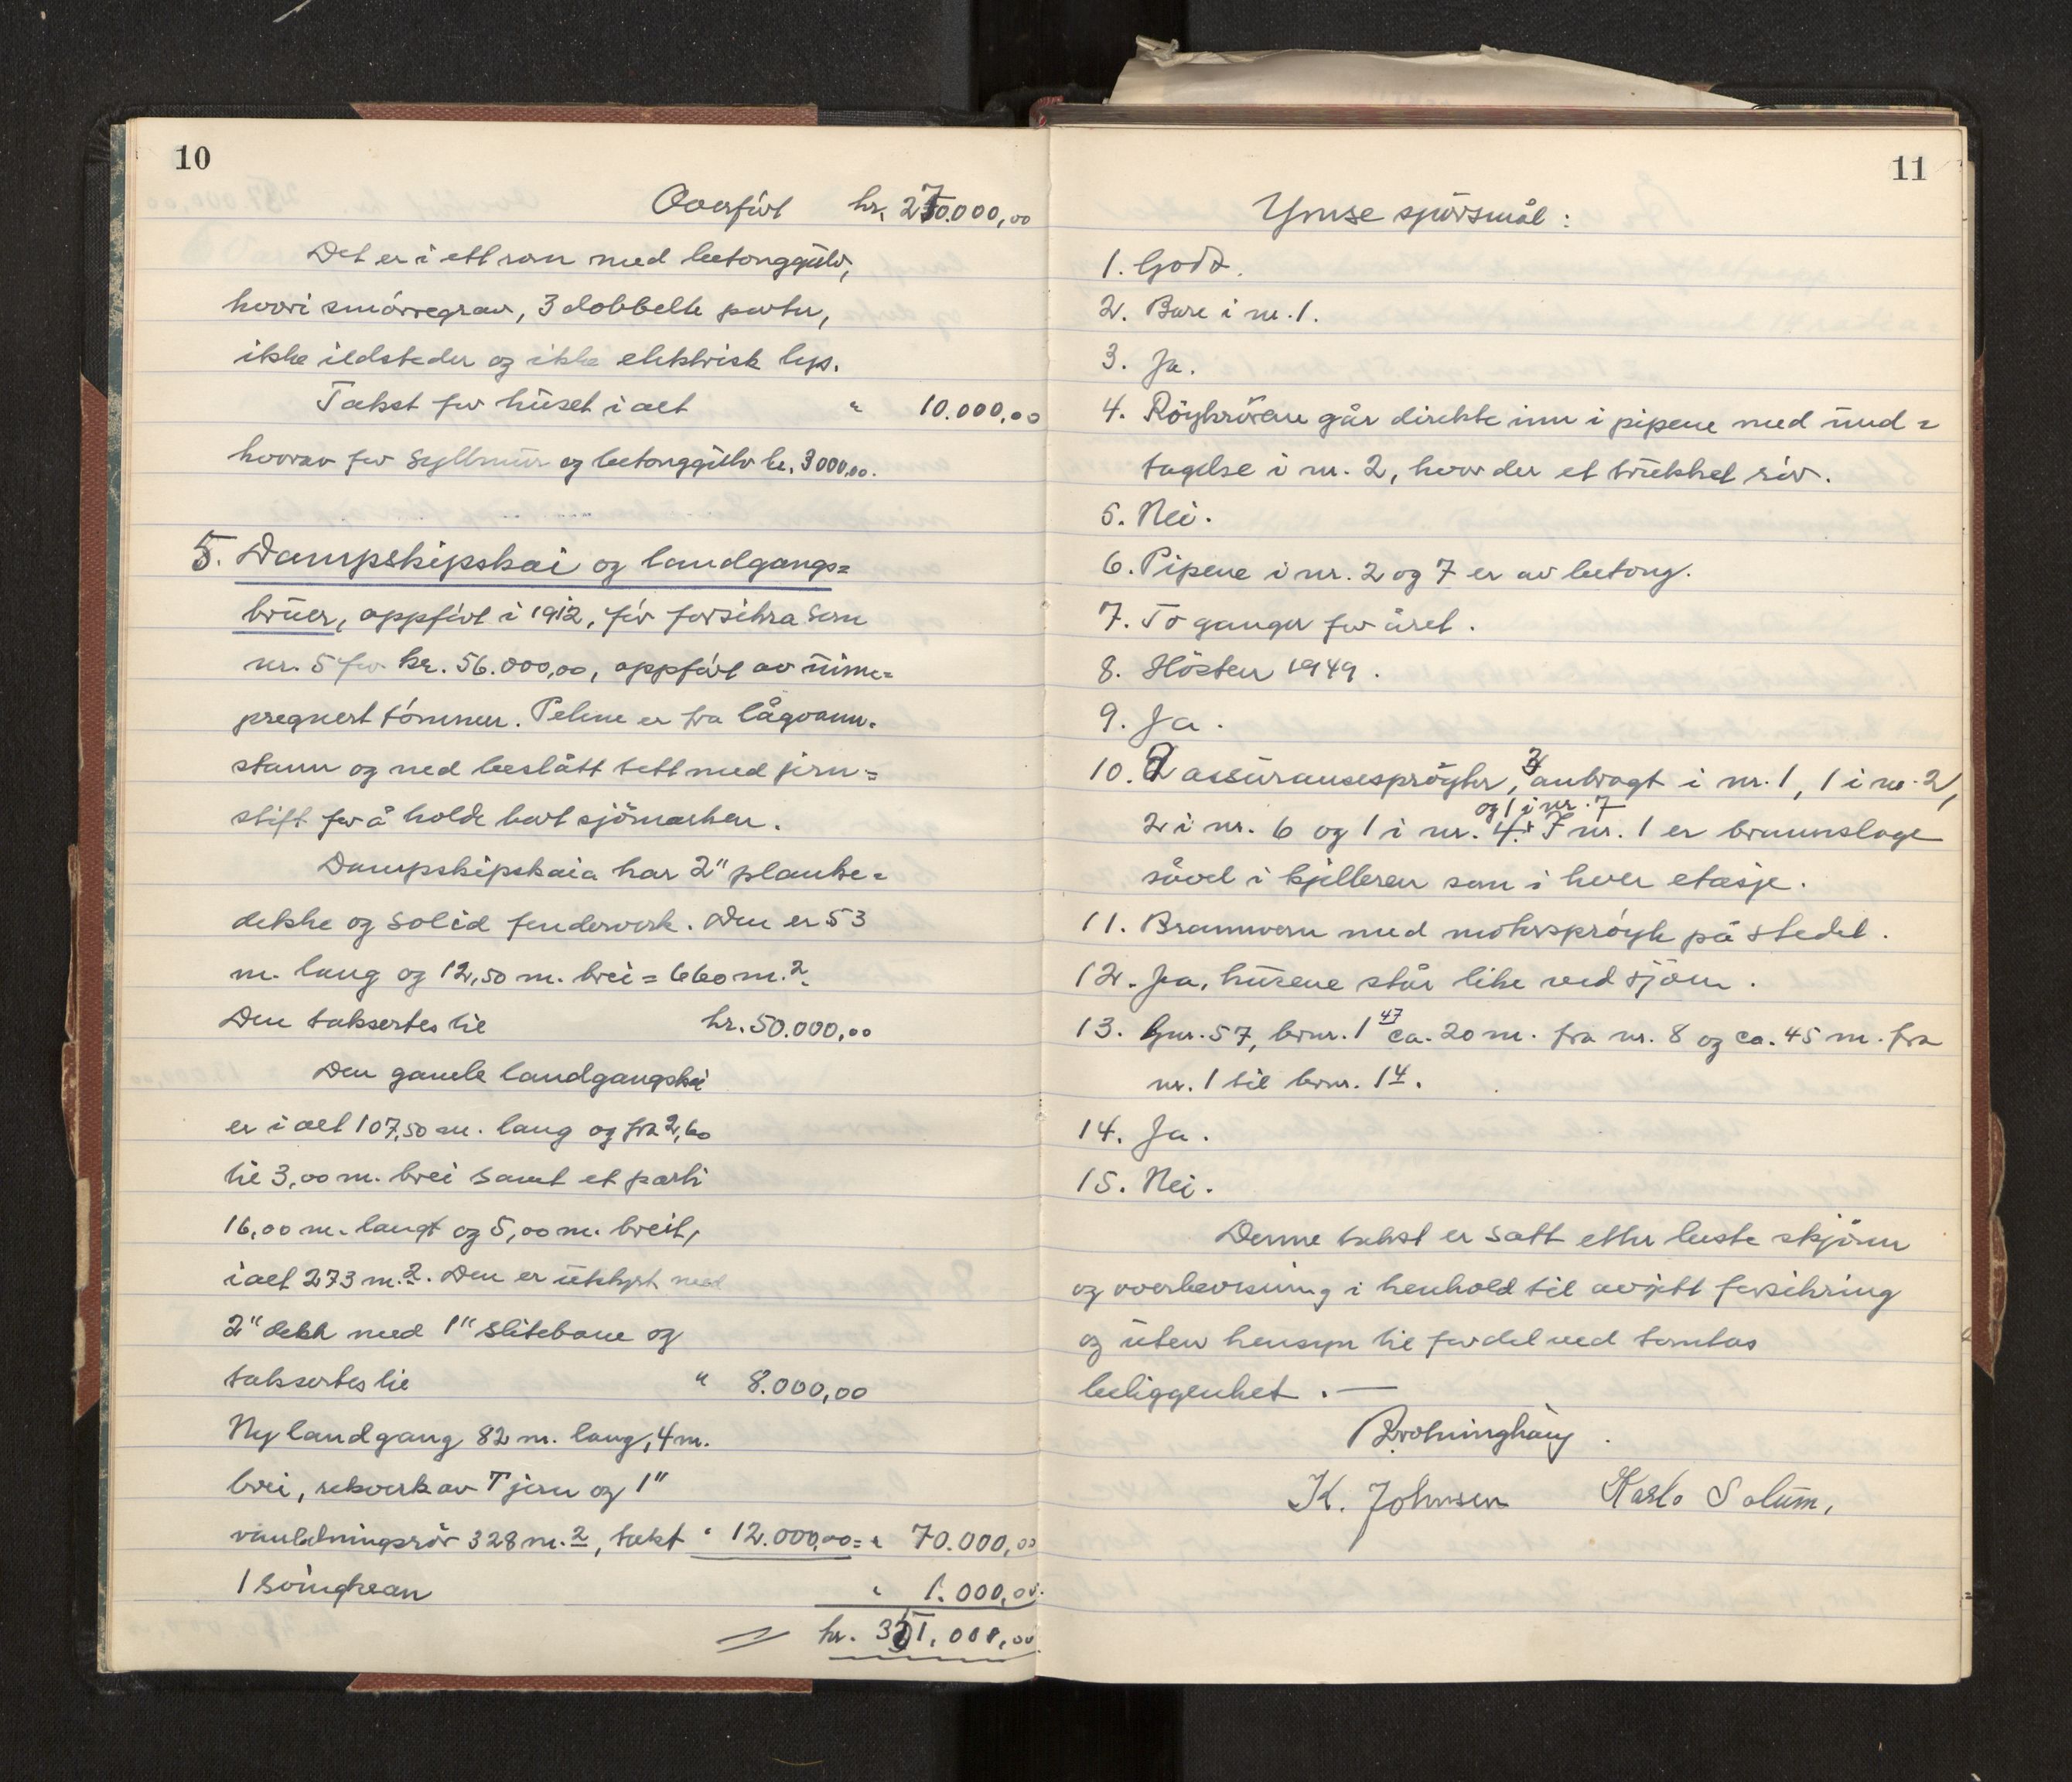 10
Overført kr. 270.000,00
Det er i ett rom med betonggulv,
hvori smørregrav, 3 dobbelte porter,
ikke ildsteder og ikke elektrisk lys.
Takst for huset i alt " 10.000,00
hvorav for syllmur og betonggulv kr. 3000,00.
5. Dampskipskai og landgangs=
bruer, oppført i 1912, før forsikra som
nr. 5 for kr. 56.000,00, oppført av uim=
pregnert tømmer. Pelene er fra lågvann=
stann og ned beslått tett med jern=
stift for å holde bort sjömarken.
Dampskipskaia har 2" planke=
dekke og solid fenderverk. Den er 53
m. lang og 12,50 m. brei = 660 m.2.
Den taksertes til kr. 50.000,00
Den gamle landgangskai
er i alt 107,50 m. lang og fra 2,60
til 3,00 m. brei samt et parti
16,00 m. langt og 5,00 m. breit,
i alt 273 m.2. Den er utstyrt med
2" dekk med 1" slitebane og
taksertes til " 8.000,00
Ny landgang 82 m. lang, 4 m.
brei, rekverk av T jern og 1"
vannledningsrör 328 m.2, takst " 12.000,00 = " 70.000,00
1 svingkran " 1.000,00
kr. 351,000,00
11
Ymse spörsmål:
1. Godt.
2. Bare i nr. 1.
3. Ja.
4. Röykrörene går direkte inn i pipene med und=
tagelse i nr. 2, hvor der et trukket rör.
5. Nei.
6. Pipene i nr. 2 og 7 er av betong.
7. To ganger for året.
8. Hösten 1949.
9. Ja.
10. assuransespröyter, 3 anbragt i nr. 1, 1 i nr. 2,
og 1 i nr. 7
2 i nr. 6 og 1 i nr. 4. I nr. 1 er brannslage
såvel i kjelleren som i hver etasje.
11. Brannvern med motorspröyte på stedet.
12. Ja, husene står like ved sjöen.
13. Gnr. 57, brnr. 1 47 ca. 20 m. fra nr. 8 og ca. 45 m. fra
nr. 1 til brnr. 1 4.
14. Ja.
15. Nei.
Denne takst er satt etter beste skjönn
og overbevisning i henhold til avgitt forsikring
og uten hensyn til fordel ved tomtas
beliggenhet. —
Dronninghaug.
K. Johnsen Karlo Solum,